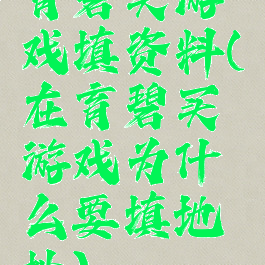 育碧买游
戏填资料(
在育碧买
游戏为什
么要填地
址)